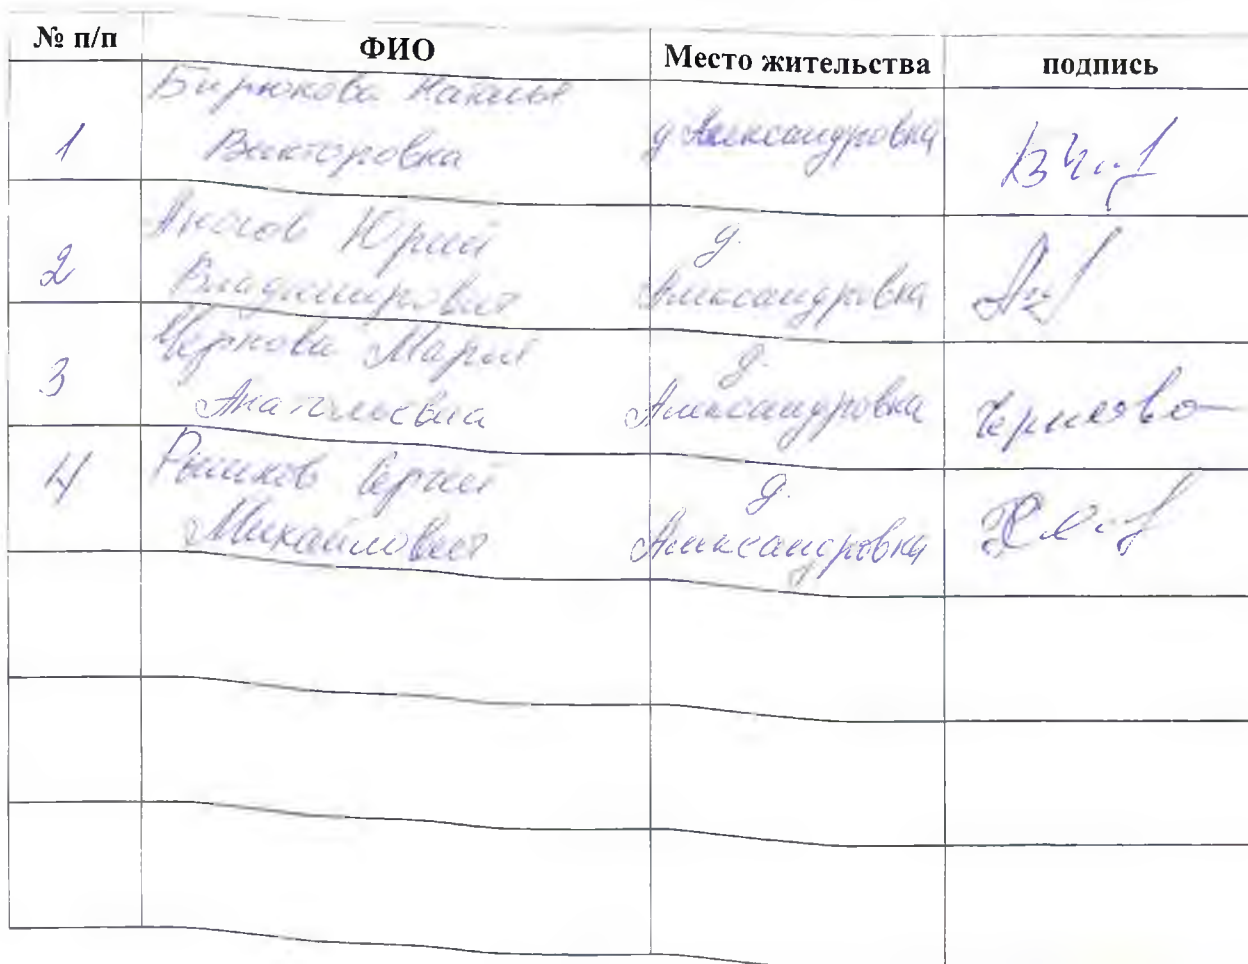 № п/п ФИО Место жительства подпись
Бирюкова Наталья
1 Викторовна д Александровка
Аносов Юрий д.
2 Владимирович Александровка
Чернова Мария д.
3 Анатольевна Александровка
4 Рышков Сергей д.
Михайлович Александровка